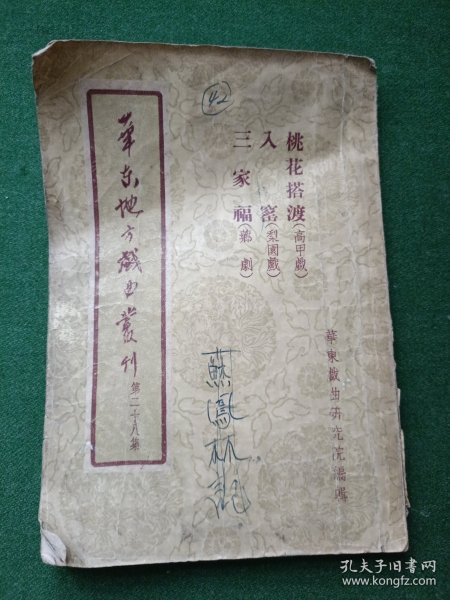 42
桃花搭渡(高甲戲)
入窰(梨園戲)
三家福(薌劇)
華東戲曲研究院編輯
華东地方戲曲叢刊
第二十八集
蘇鳳林記
孔夫子旧书网
www.kongfz.com